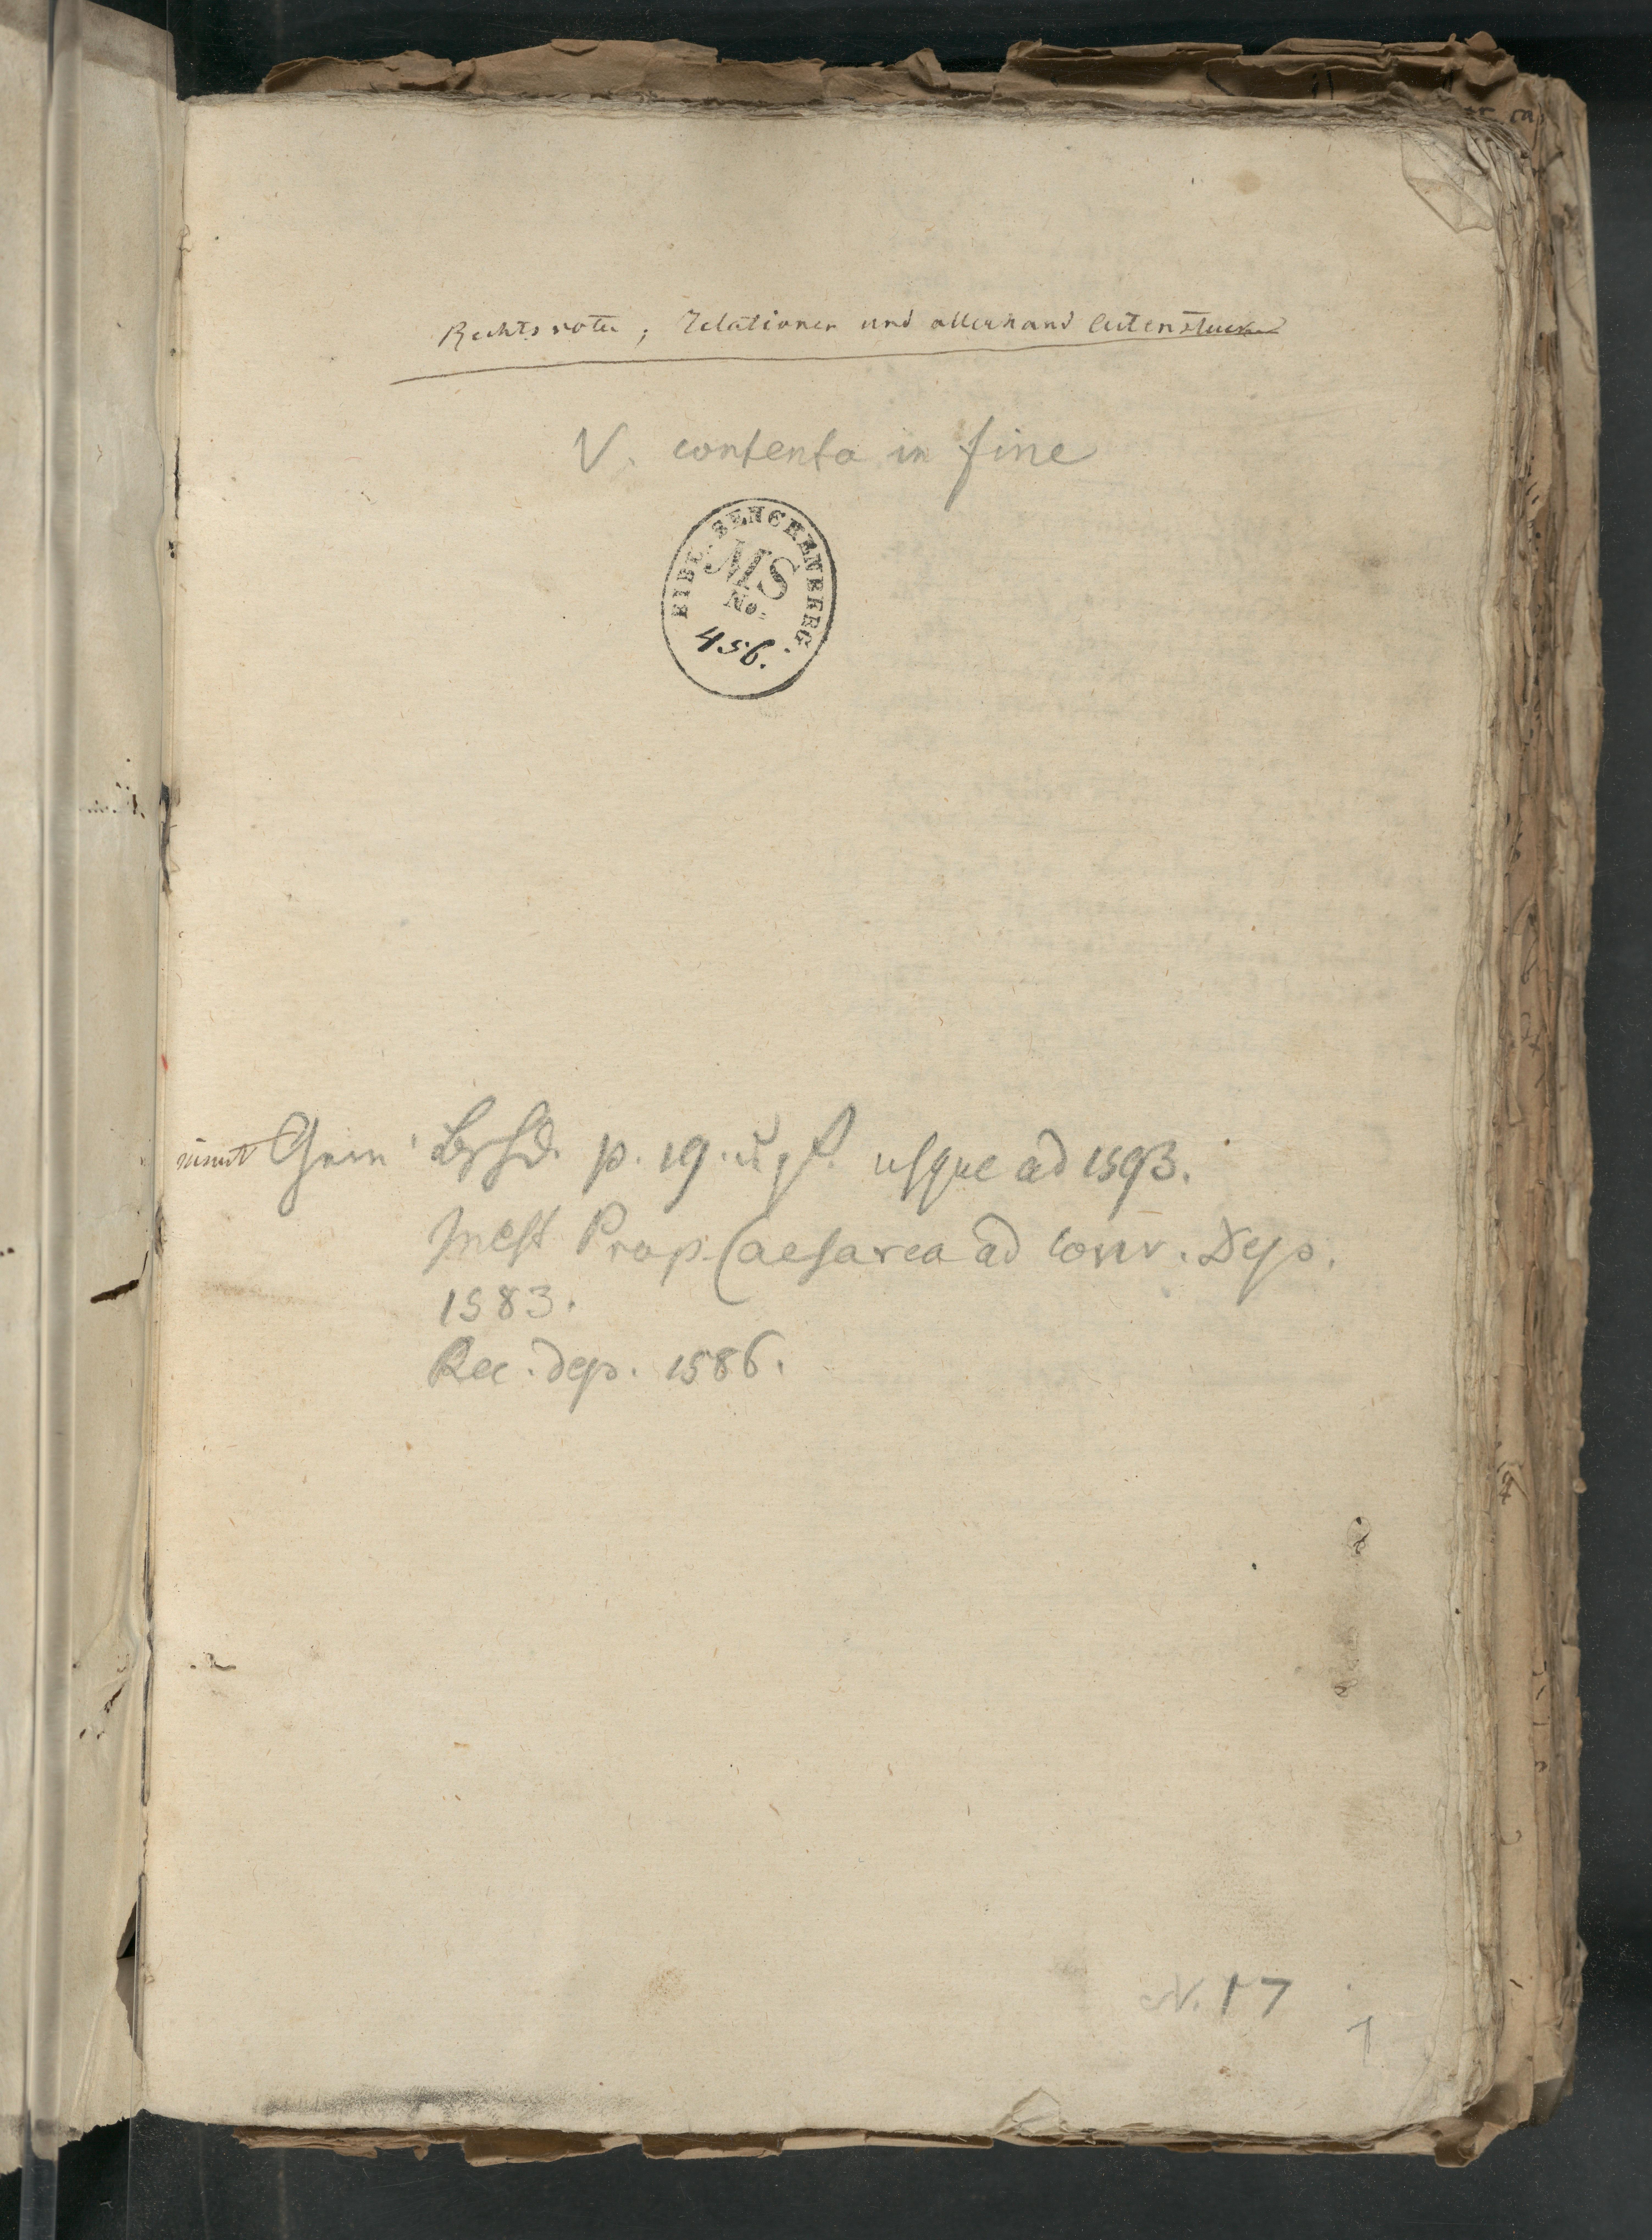 Rechts vota, Relationen und allerhand Actenstucke
V. contenta in fine
BIBL. SENCKENBERG.
MS
No.
456.
Gem. Bschd. p. 19. u. f. usque ad 1593.
Inest Prop. Caesarea ad Conv. Dep.
1583.
Rec. dep. 1586.
N. 17
1